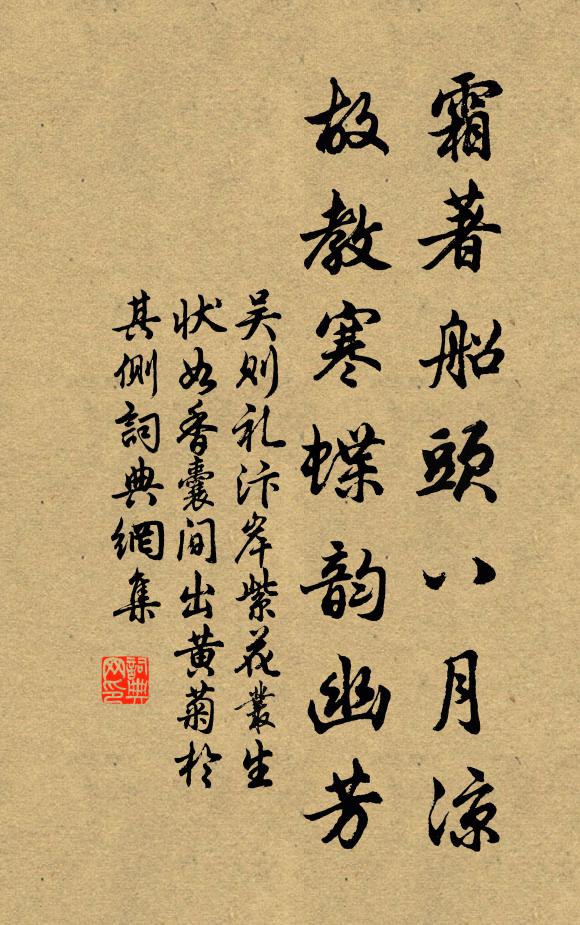 霜著船頭八月凉
故教寒蝶韵幽芳
吴则礼汴岸紫花叢生
状如香囊间出黄菊於
其侧詞典網集
詞典
网印